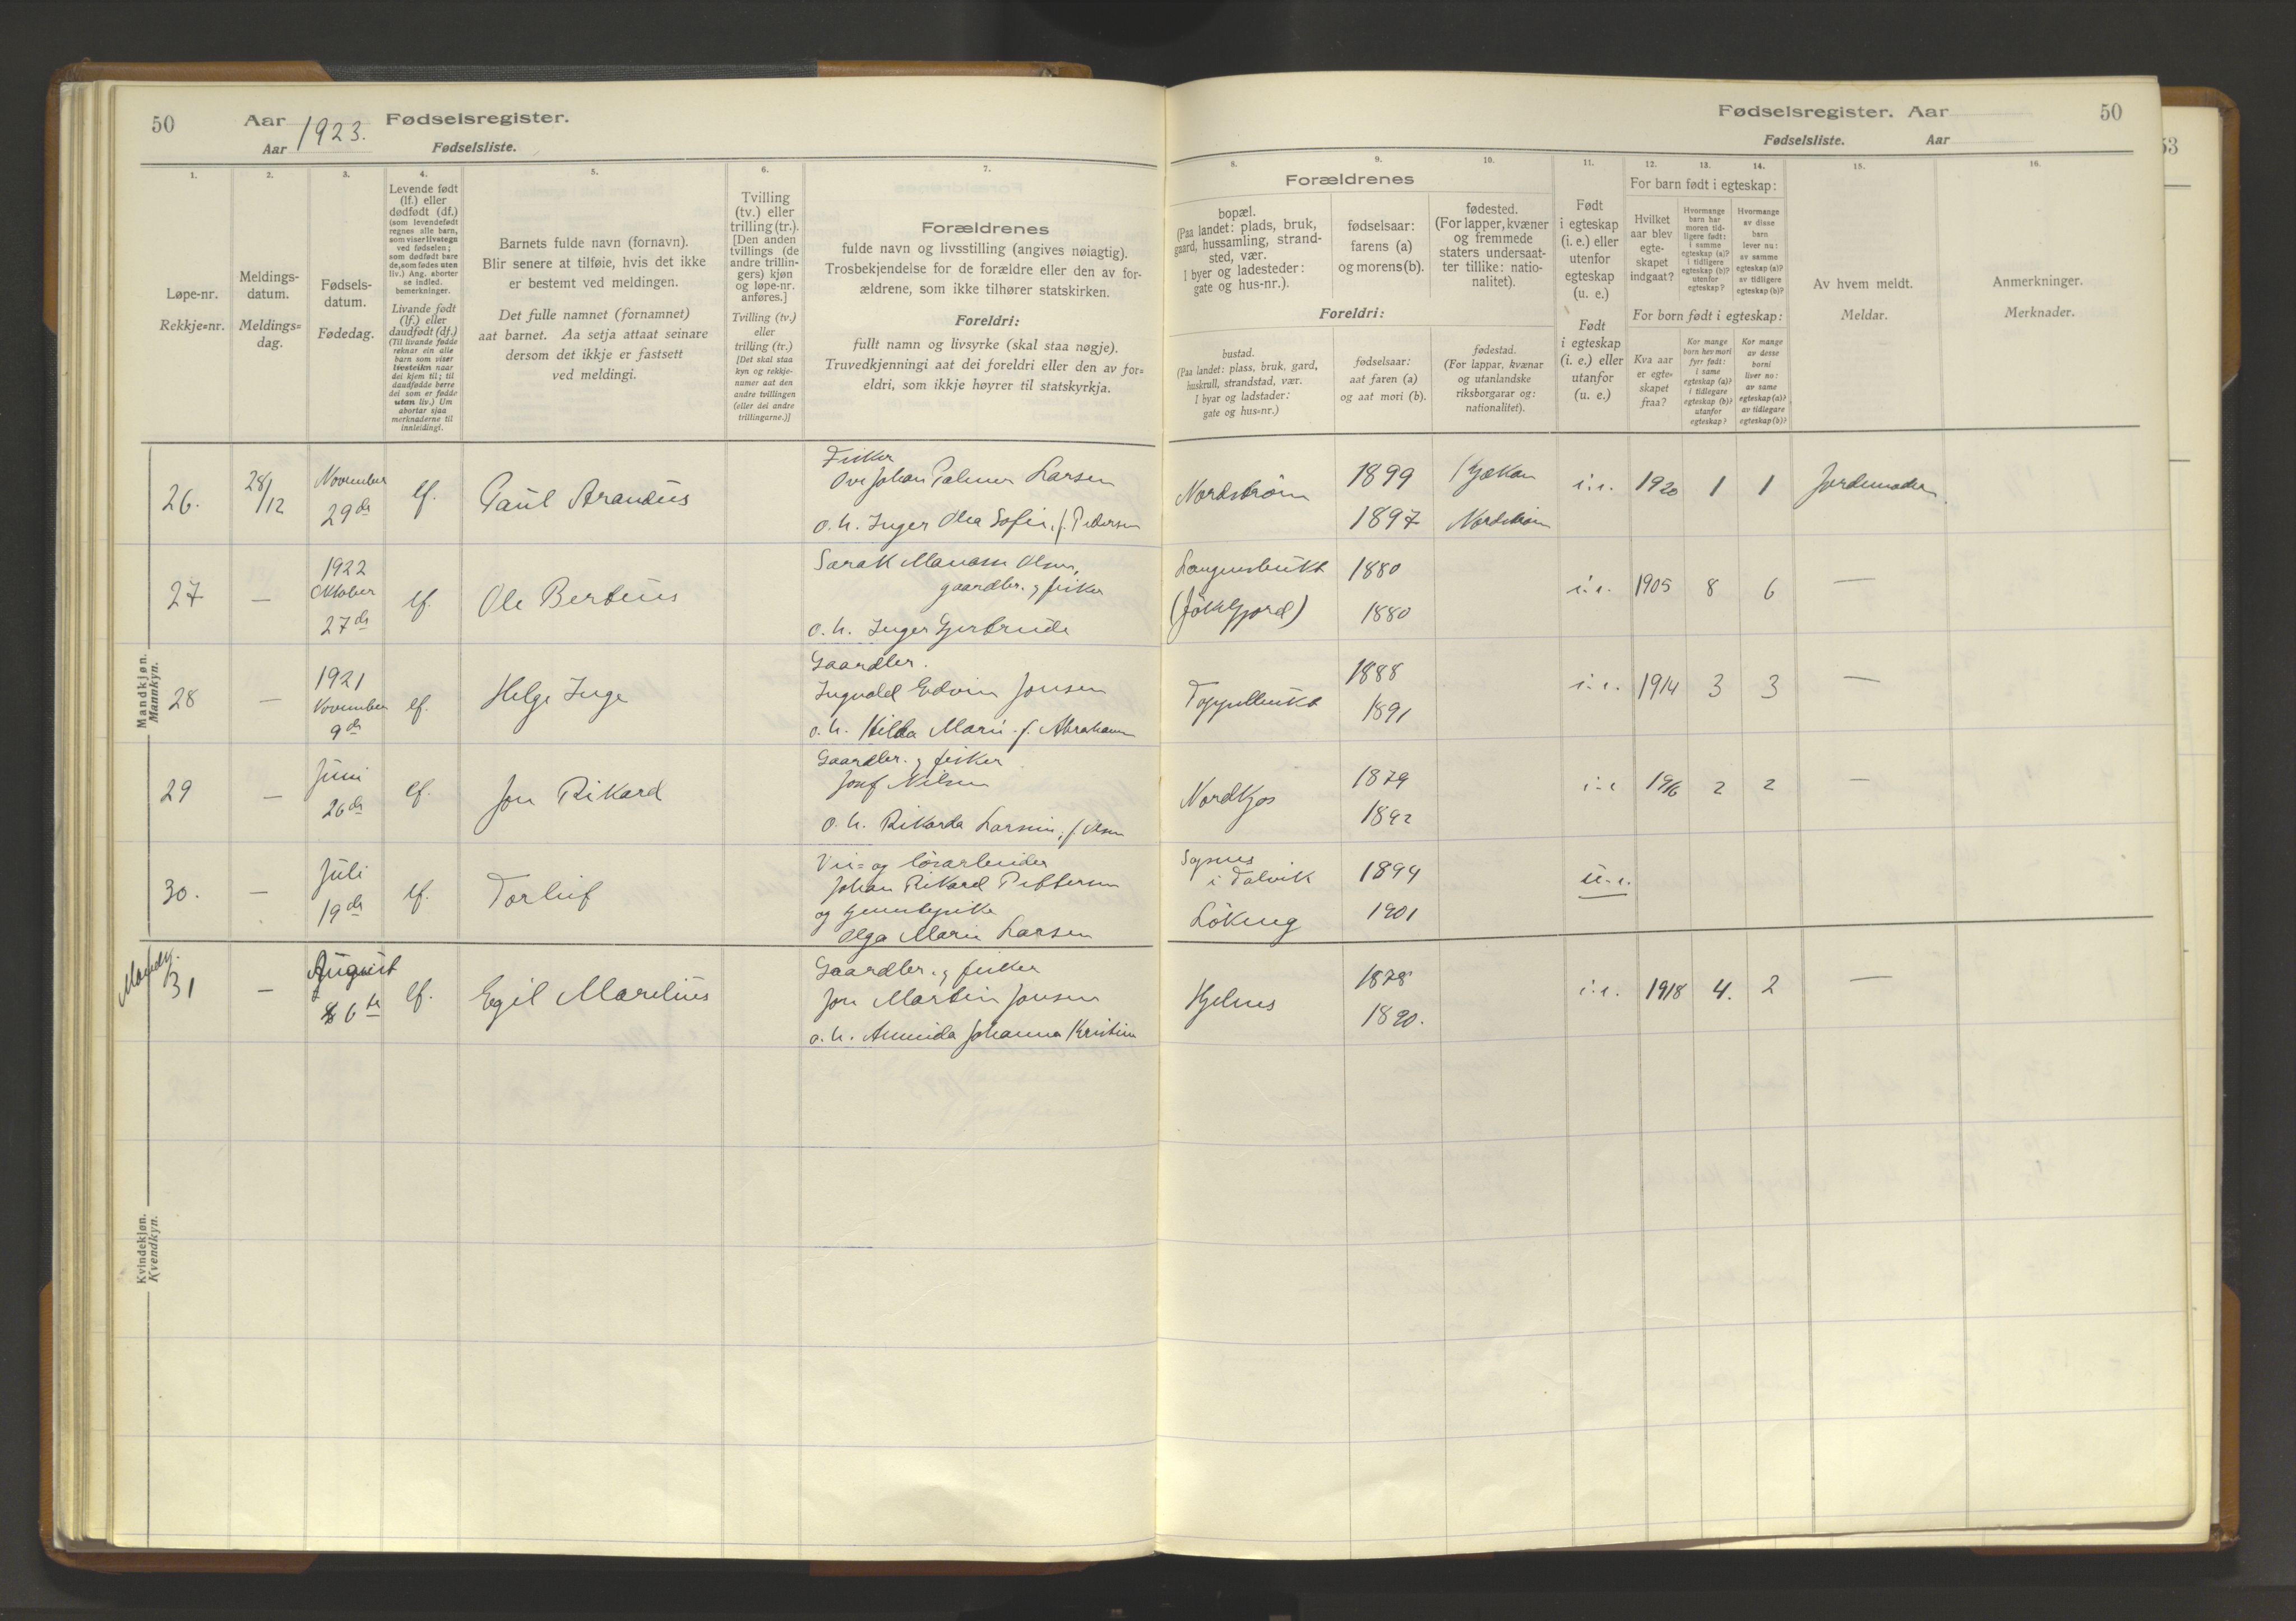 50
Aar 1923.
Fødselsregister.
Aar
Fødselsliste.
1.
2.
3.
4.
5.
6.
7.
Løpe-nr.
Rekkje=nr.
Meldings-
datum.
Meldings=
dag.
Fødsels-
datum.
Fødedag.
Levende født
(lf.) eller
dødfødt (df.)
(som levendefødt
regnes alle barn,
som viser livstegn
ved fødselen;
som dødfødt bare
de, som fødes uten
liv.) Ang. aborter
se indled.
bemerkninger.
Livande født
(lf.) eller
daudfødt (df.)
(Til livande fødde
reknar ein alle
barn som viser
livsteikn naar
dei kjem til; til
daudfødde berre
dei som er fødde
utan liv.) Um
abortar sjaa
merknaderne til
innleidingi.
Barnets fulde navn (fornavn).
Blir senere at tilføie, hvis det ikke
er bestemt ved meldingen.
Det fulle namnet (fornamnet)
aat barnet. Aa setja attaat seinare
dersom det ikkje er fastsett
ved meldingi.
Tvilling
(tv.) eller
trilling (tr.).
[Den anden
tvillings (de
andre trillin-
gers) kjøn
og løpe-nr.
anføres.]
Tvilling (tv.)
eller
trilling (tr.)
[Det skal staa
kyn og rekkje-
numer aat den
andre tvillingen
(eller dei andre
trillingarne.)]
Forældrenes
fulde navn og livsstilling (angives nøiagtig).
Trosbekjendelse for de forældre eller den av for-
ældrene, som ikke tilhører statskirken.
Foreldri:
fullt namn og livsyrke (skal staa nøgje).
Truvedkjenningi aat dei foreldri eller den av for=
eldri, som ikkje høyrer til statskyrkja.
Fødselsregister. Aar
50
Fødselsliste.
Aar
53
8.
9.
10.
11.
12.
13.
14.
15.
16.
Forældrenes
bopæl.
(Paa landet: plads, bruk,
gaard, hussamling, strand-
sted, vær.
I byer og ladesteder:
gate og hus-nr.).
fødselsaar:
farens (a)
og morens (b).
fødested.
(For lapper, kvæner
og fremmede
staters undersaat-
ter tillike: natio-
nalitet).
Foreldri:
bustad.
(Paa landet: plass, bruk, gard,
huskrull, strandstad, vær.
I byar og ladstader:
gate og hus=nr.)
fødselsaar:
aat faren (a)
og aat mori (b).
fødestad.
(For lappar, kvænar
og utanlandske
riksborgarar og:
nationalitet).
Født
i egteskap
(i. e.) eller
utenfor
egteskap
(u. e.)
Født
i egteskap
(i. e.) eller
utanfor
(u. e.)
For barn født i egteskap:
Hvilket
aar blev
egte-
skapet
indgaat?
Hvormange
barn har
moren tid-
ligere født:
i samme
egteskap (a)?
i tidligere
egteskap (b)?
utenfor
egteskap?
Hvormange
av disse
barn
lever nu:
av samme
egteskap (a)?
av tidligere
egteskap (b)?
For born født i egteskap:
Kva aar
er egte-
skapet
fraa?
Kor mange
born hev mori
fyrr født:
i same
egteskap (a)?
i tidlegare
egteskap (b)?
utanfor
egteskap?
Kor mange
av desse
borni
liver no:
av same
egteskap (a)?
av tidlegare
egteskap (b)?
Av hvem meldt.
Meldar.
Anmerkninger.
Merknader.
Mandkjøn.
Mannkyn.
26.
28/12
November
29de
lf.
Paul Arandus
Fisker
Ove Johan Palmer Larsen
o. h. Inger Olea Sofie, f. Pedersen
Nordstrøm
1899
1897
Kjækan
Nordstrøm
i. e.
1920
1
1
Jordemoder.
27
—
1922
Oktober
27de
lf.
Ole Berteus
Sarak Manasse Olsen,
gaardbr. og fisker
o. h. Inger Gjertrude
Langnesbukt
(Jøkelfjord)
1880
1880
i. e.
1905
8
6
—
28
—
1921
November
9de
lf.
Helge Inge
Gaardbr.
Ingvald Edvin Jonsen
o. h. Hilda Marie f. Abrahamsen
Toppelbukt
1888
1891
i. e.
1914
3
3
—
29
—
Juni
26de
lf.
Jon Rikard
Gaardbr. og fisker
Josef Nilsen
o. h. Rikarda Larsine, f. Olsen
Nordkjos
1879
1892
i. e
1916
2
2
—
30.
—
Juli
19de
lf.
Torleif
Vei= og løsarbeider
Johan Rikard Pettersen
og tjenestepike
Olga Marie Larsen
Sopnes
i Talvik
Løkeng
1894
1901
u. e.
Mandkj.
31
—
August
6te
lf.
Egil Marelius
Gaardbr. og fisker
Jon Martin Jonsen
o. h. Armida Johanna Kristine
Kjelnes
1878
1890.
i. e.
1918
4.
2
—
Kvindekjøn.
Kvendkyn.